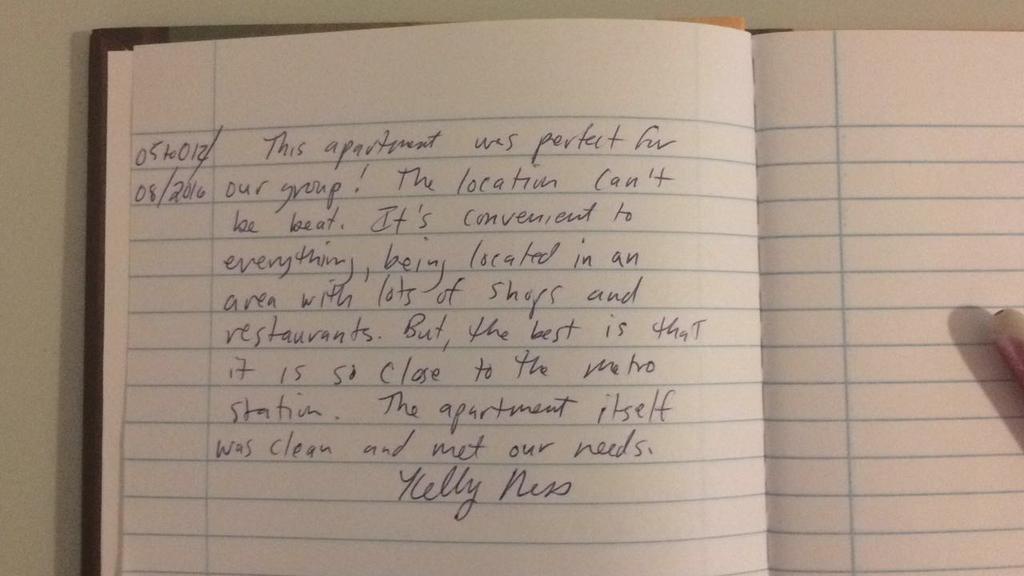 05 to 012/ This apartment was perfect for
08/2016 our group! The location can't
be beat. It's convenient to
everything, being located in an
area with lots of shops and
restaurants. But, the best is that
it is so close to the metro
station. The apartment itself
was clean and met our needs.
Kelly Ness